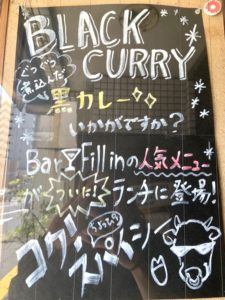 BLACK
CURRY
ぐつぐつ
煮込んだ
黒カレー
いかがですか?
Bar Fill inの人気メニュー
が ついに! ランチに登場!
ちょっぴり
コク!
スパイシー